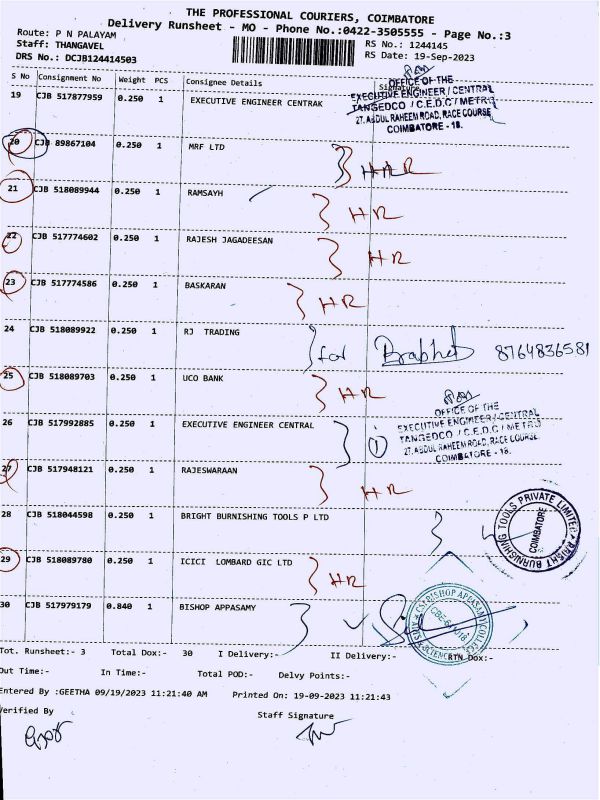 THE PROFESSIONAL COURIERS, COIMBATORE
Delivery Runsheet - MO - Phone No.:0422-3505555 - Page No.:3
Route: P N PALAYAM
Staff: THANGAVEL
DRS No.: DCJB124414503
RS No.: 1244145
RS Date: 19-Sep-2023
S No Consignment No Weight PCS Consignee Details Signature
19 CJB 517877959 0.250 1 EXECUTIVE ENGINEER CENTRAK
OFFICE OF THE
EXECUTIVE ENGINEER / CENTRAL
TANGEDCO / C.E.D.C / METRO
27, ABDUL RAHEEM ROAD, RACE COURSE
COIMBATORE - 18.
20 CJB 89867104 0.250 1 MRF LTD HR
21 CJB 518089944 0.250 1 RAMSAYH HR
22 CJB 517774602 0.250 1 RAJESH JAGADEESAN HR
23 CJB 517774586 0.250 1 BASKARAN HR
24 CJB 518089922 0.250 1 RJ TRADING for 8764836581
25 CJB 518089703 0.250 1 UCO BANK HR
26 CJB 517992885 0.250 1 EXECUTIVE ENGINEER CENTRAL 1
OFFICE OF THE
EXECUTIVE ENGINEER / CENTRAL
TANGEDCO / C.E.D.C / METRO
27, ABDUL RAHEEM ROAD, RACE COURSE
COIMBATORE - 18.
27 CJB 517948121 0.250 1 RAJESWARAAN HR
28 CJB 518044598 0.250 1 BRIGHT BURNISHING TOOLS P LTD
BRIGHT BURNISHING TOOLS PRIVATE LIMITED
COIMBATORE
29 CJB 518089780 0.250 1 ICICI LOMBARD GIC LTD HR
30 CJB 517979179 0.840 1 BISHOP APPASAMY
CSI BISHOP APPASAMY COLLEGE
Tot. Runsheet:- 3 Total Dox:- 30 I Delivery:- II Delivery:- RTN Dox:-
Out Time:- In Time:- Total POD:- Delvy Points:-
Entered By :GEETHA 09/19/2023 11:21:40 AM Printed On: 19-09-2023 11:21:43
Verified By Staff Signature